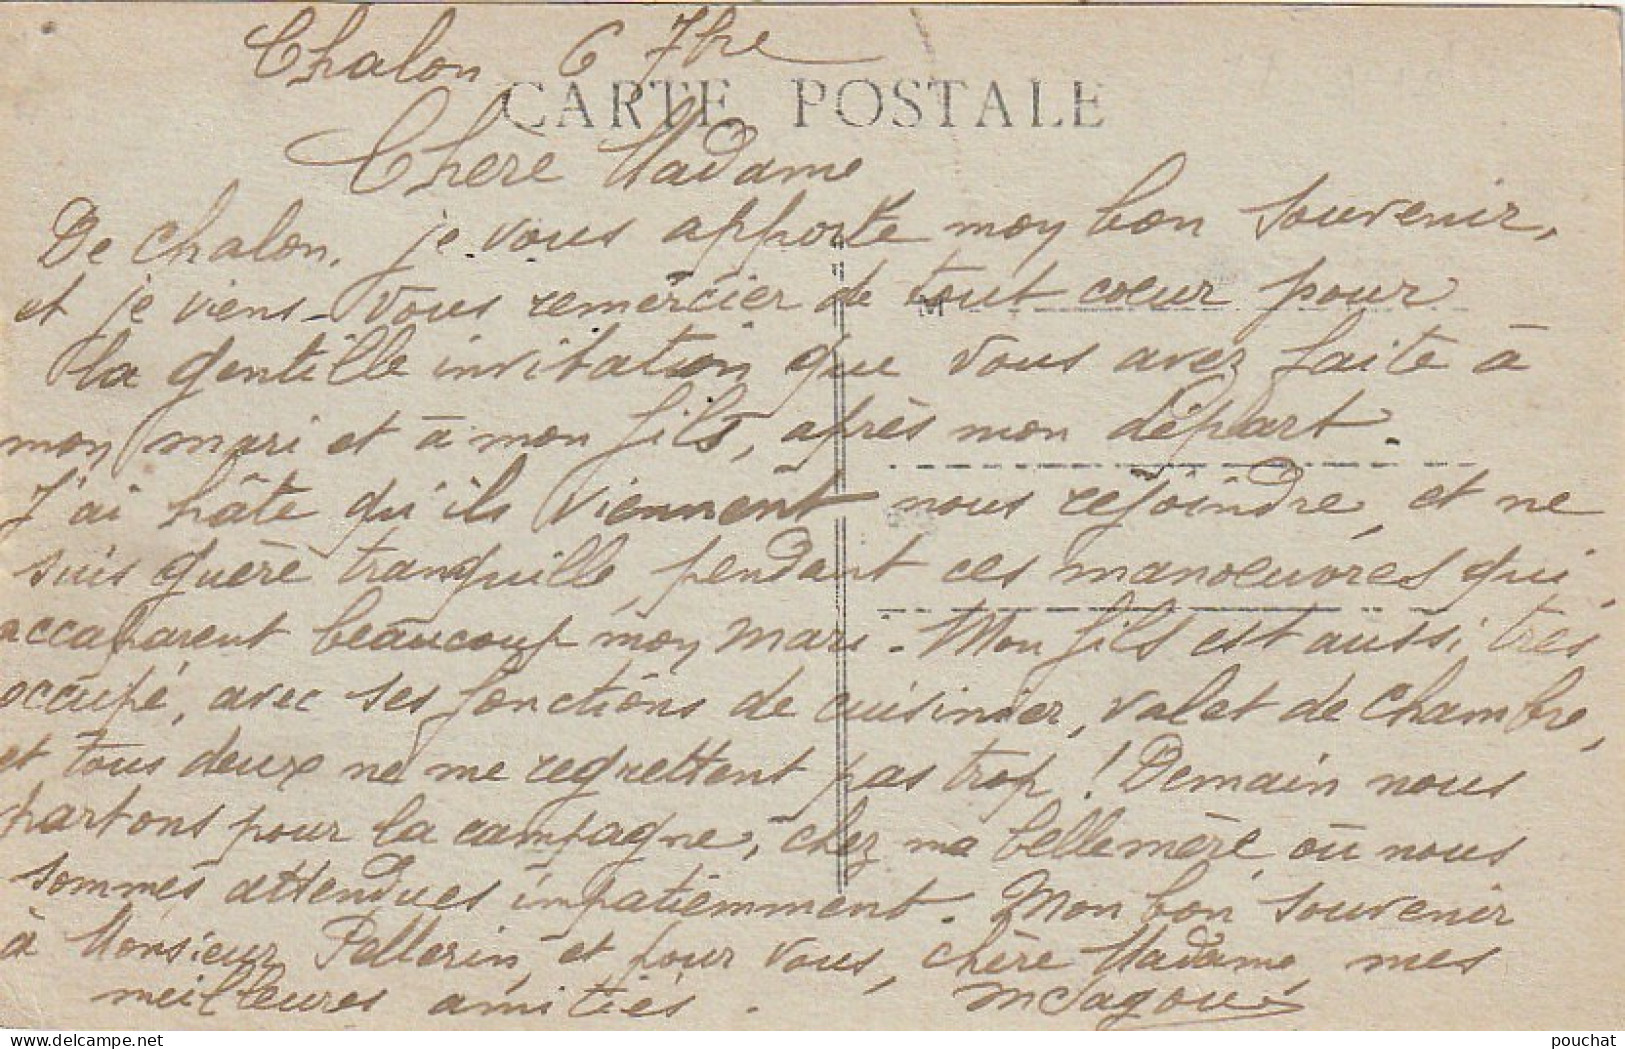 Chalon 6 7bre
CARTE POSTALE
Chère Madame
De Chalon, je vous apporte mon bon souvenir,
et je viens vous remercier de tout coeur pour
la gentille invitation que vous avez faite à
mon mari et à mon fils, après mon départ.
J'ai hâte qu'ils viennent nous rejoindre, et ne
suis guère tranquille, pendant ces manoeuvres qui
accaparent beaucoup mon mari. Mon fils est aussi très
occupé, avec ses fonctions de cuisinier, valet de chambre,
et tous deux ne me regrettent pas trop! Demain nous
partons pour la campagne, chez ma bellemère, où nous
sommes attendues impatiemment. Mon bon souvenir
à Monsieur Pellerin, et pour vous, chère Madame, mes
meilleures amitiés.
delcampe.net
pouchat